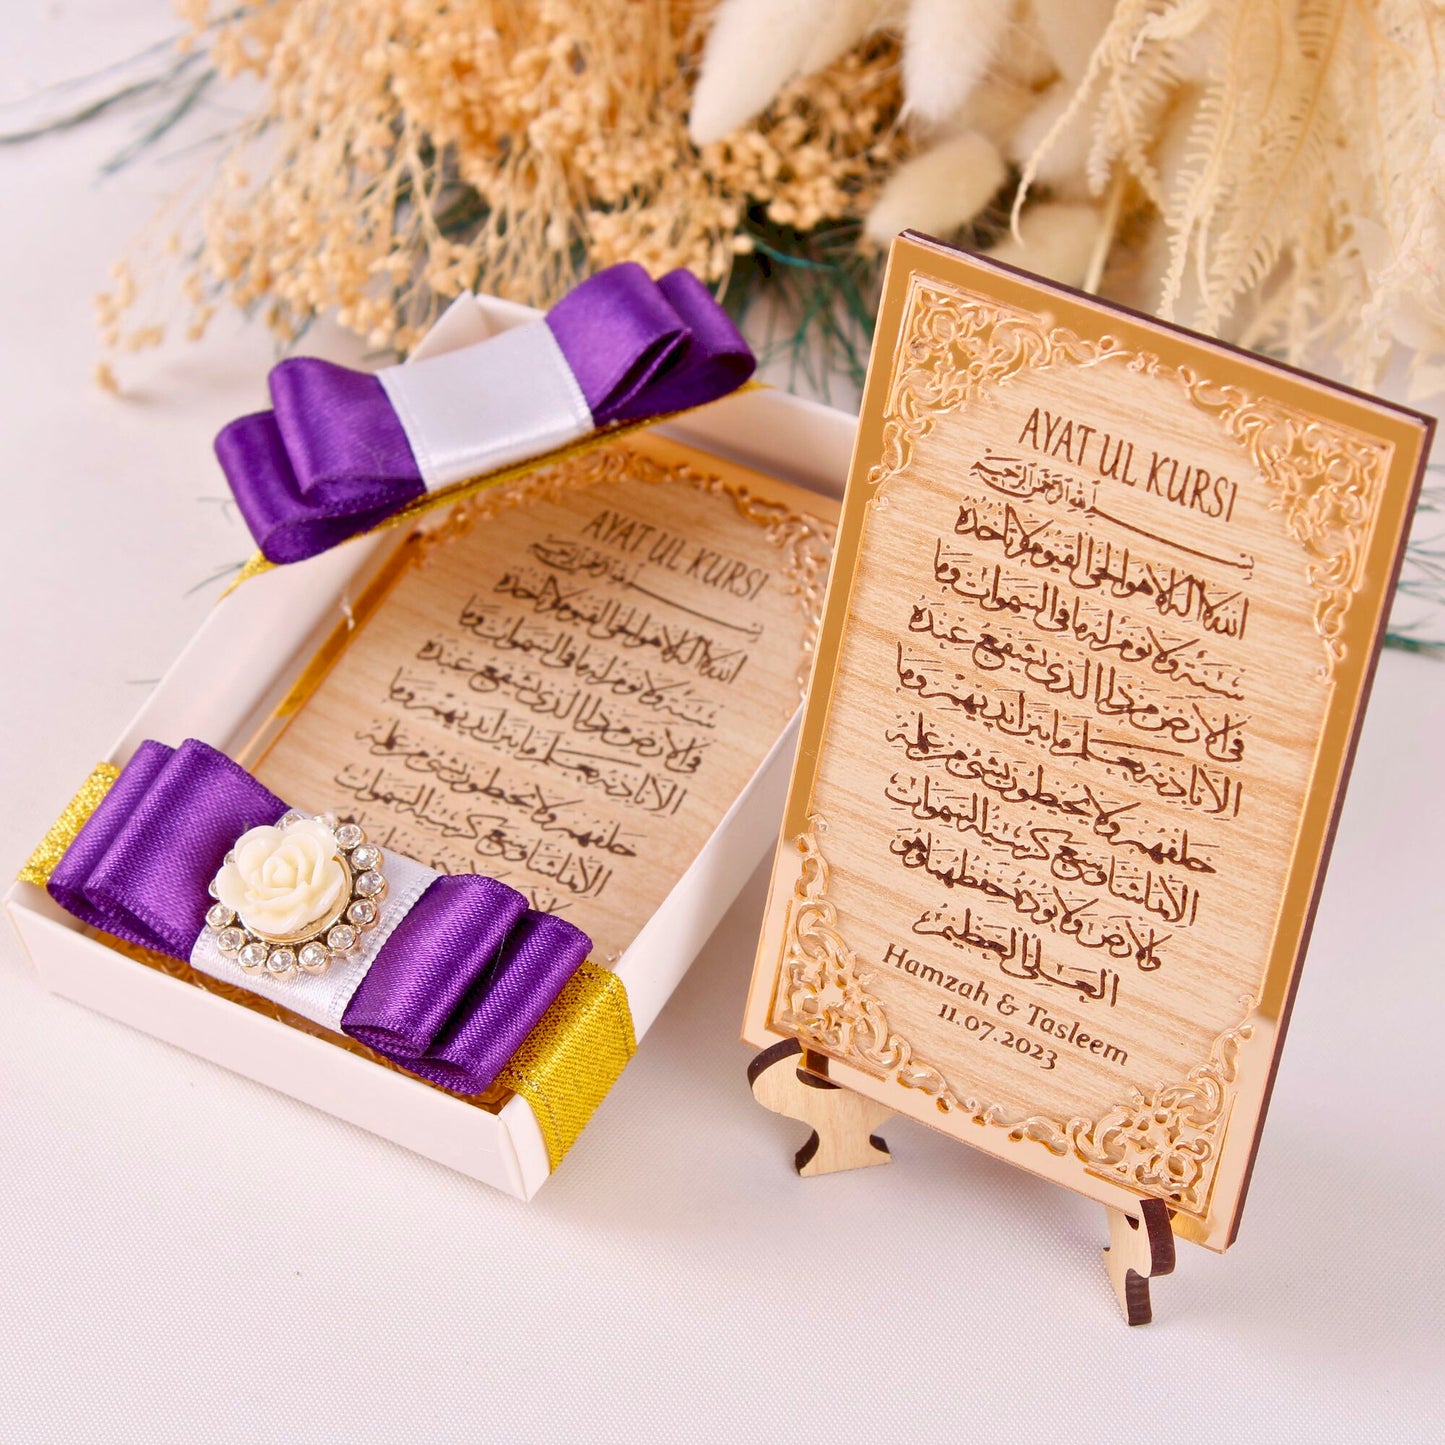 AYAT UL KURSI
بسم الله الرحمن الرحيم
الله لا اله الا هو الحي القيوم لا تأخذه
سنة ولا نوم له ما في السموات وما
في الارض من ذا الذي يشفع عنده
الا باذنه يعلم ما بين ايديهم وما
خلفهم ولا يحيطون بشيء من علمه
الا بما شاء وسع كرسيه السموات
والارض ولا يؤده حفظهما وهو
العلي العظيم
Hamzah & Tasleem
11.07.2023
AYAT UL KURSI
بسم الله الرحمن الرحيم
الله لا اله الا هو الحي القيوم لا تأخذه
سنة ولا نوم له ما في السموات وما
في الارض من ذا الذي يشفع عنده
الا باذنه يعلم ما بين ايديهم وما
خلفهم ولا يحيطون بشيء من علمه
الا بما شاء وسع كرسيه السموات